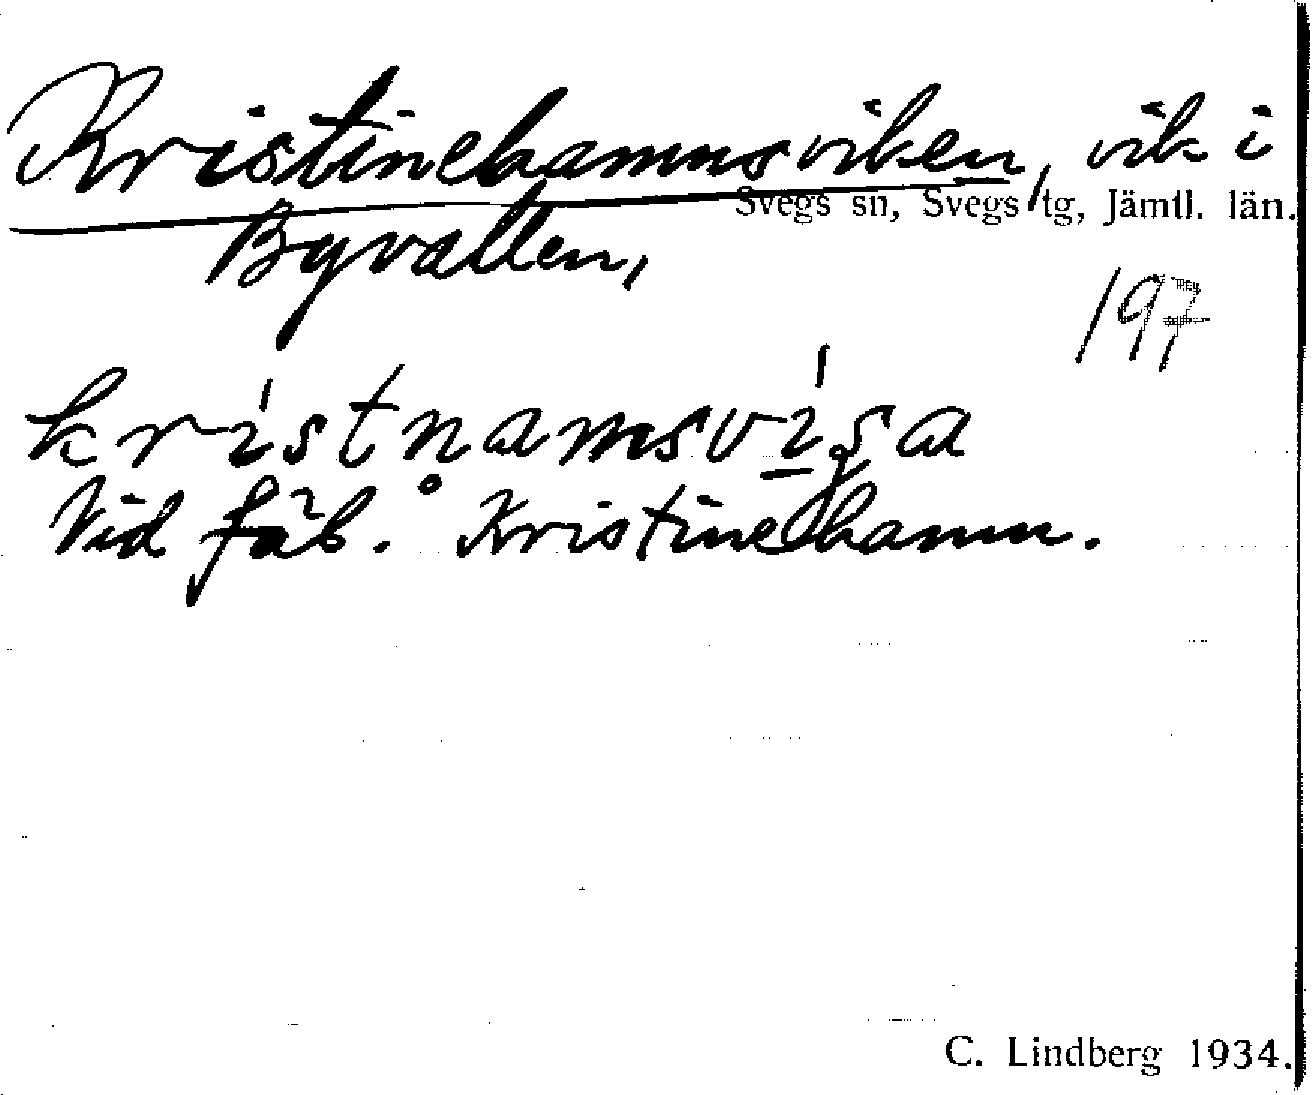 Kristinehamnsviken, vik i
Svegs sn, Svegs tg, Jämtl. län.
Byvallen,
197
kristnamsviga
Vid fäb. Kristinehamn.
C. Lindberg 1934.